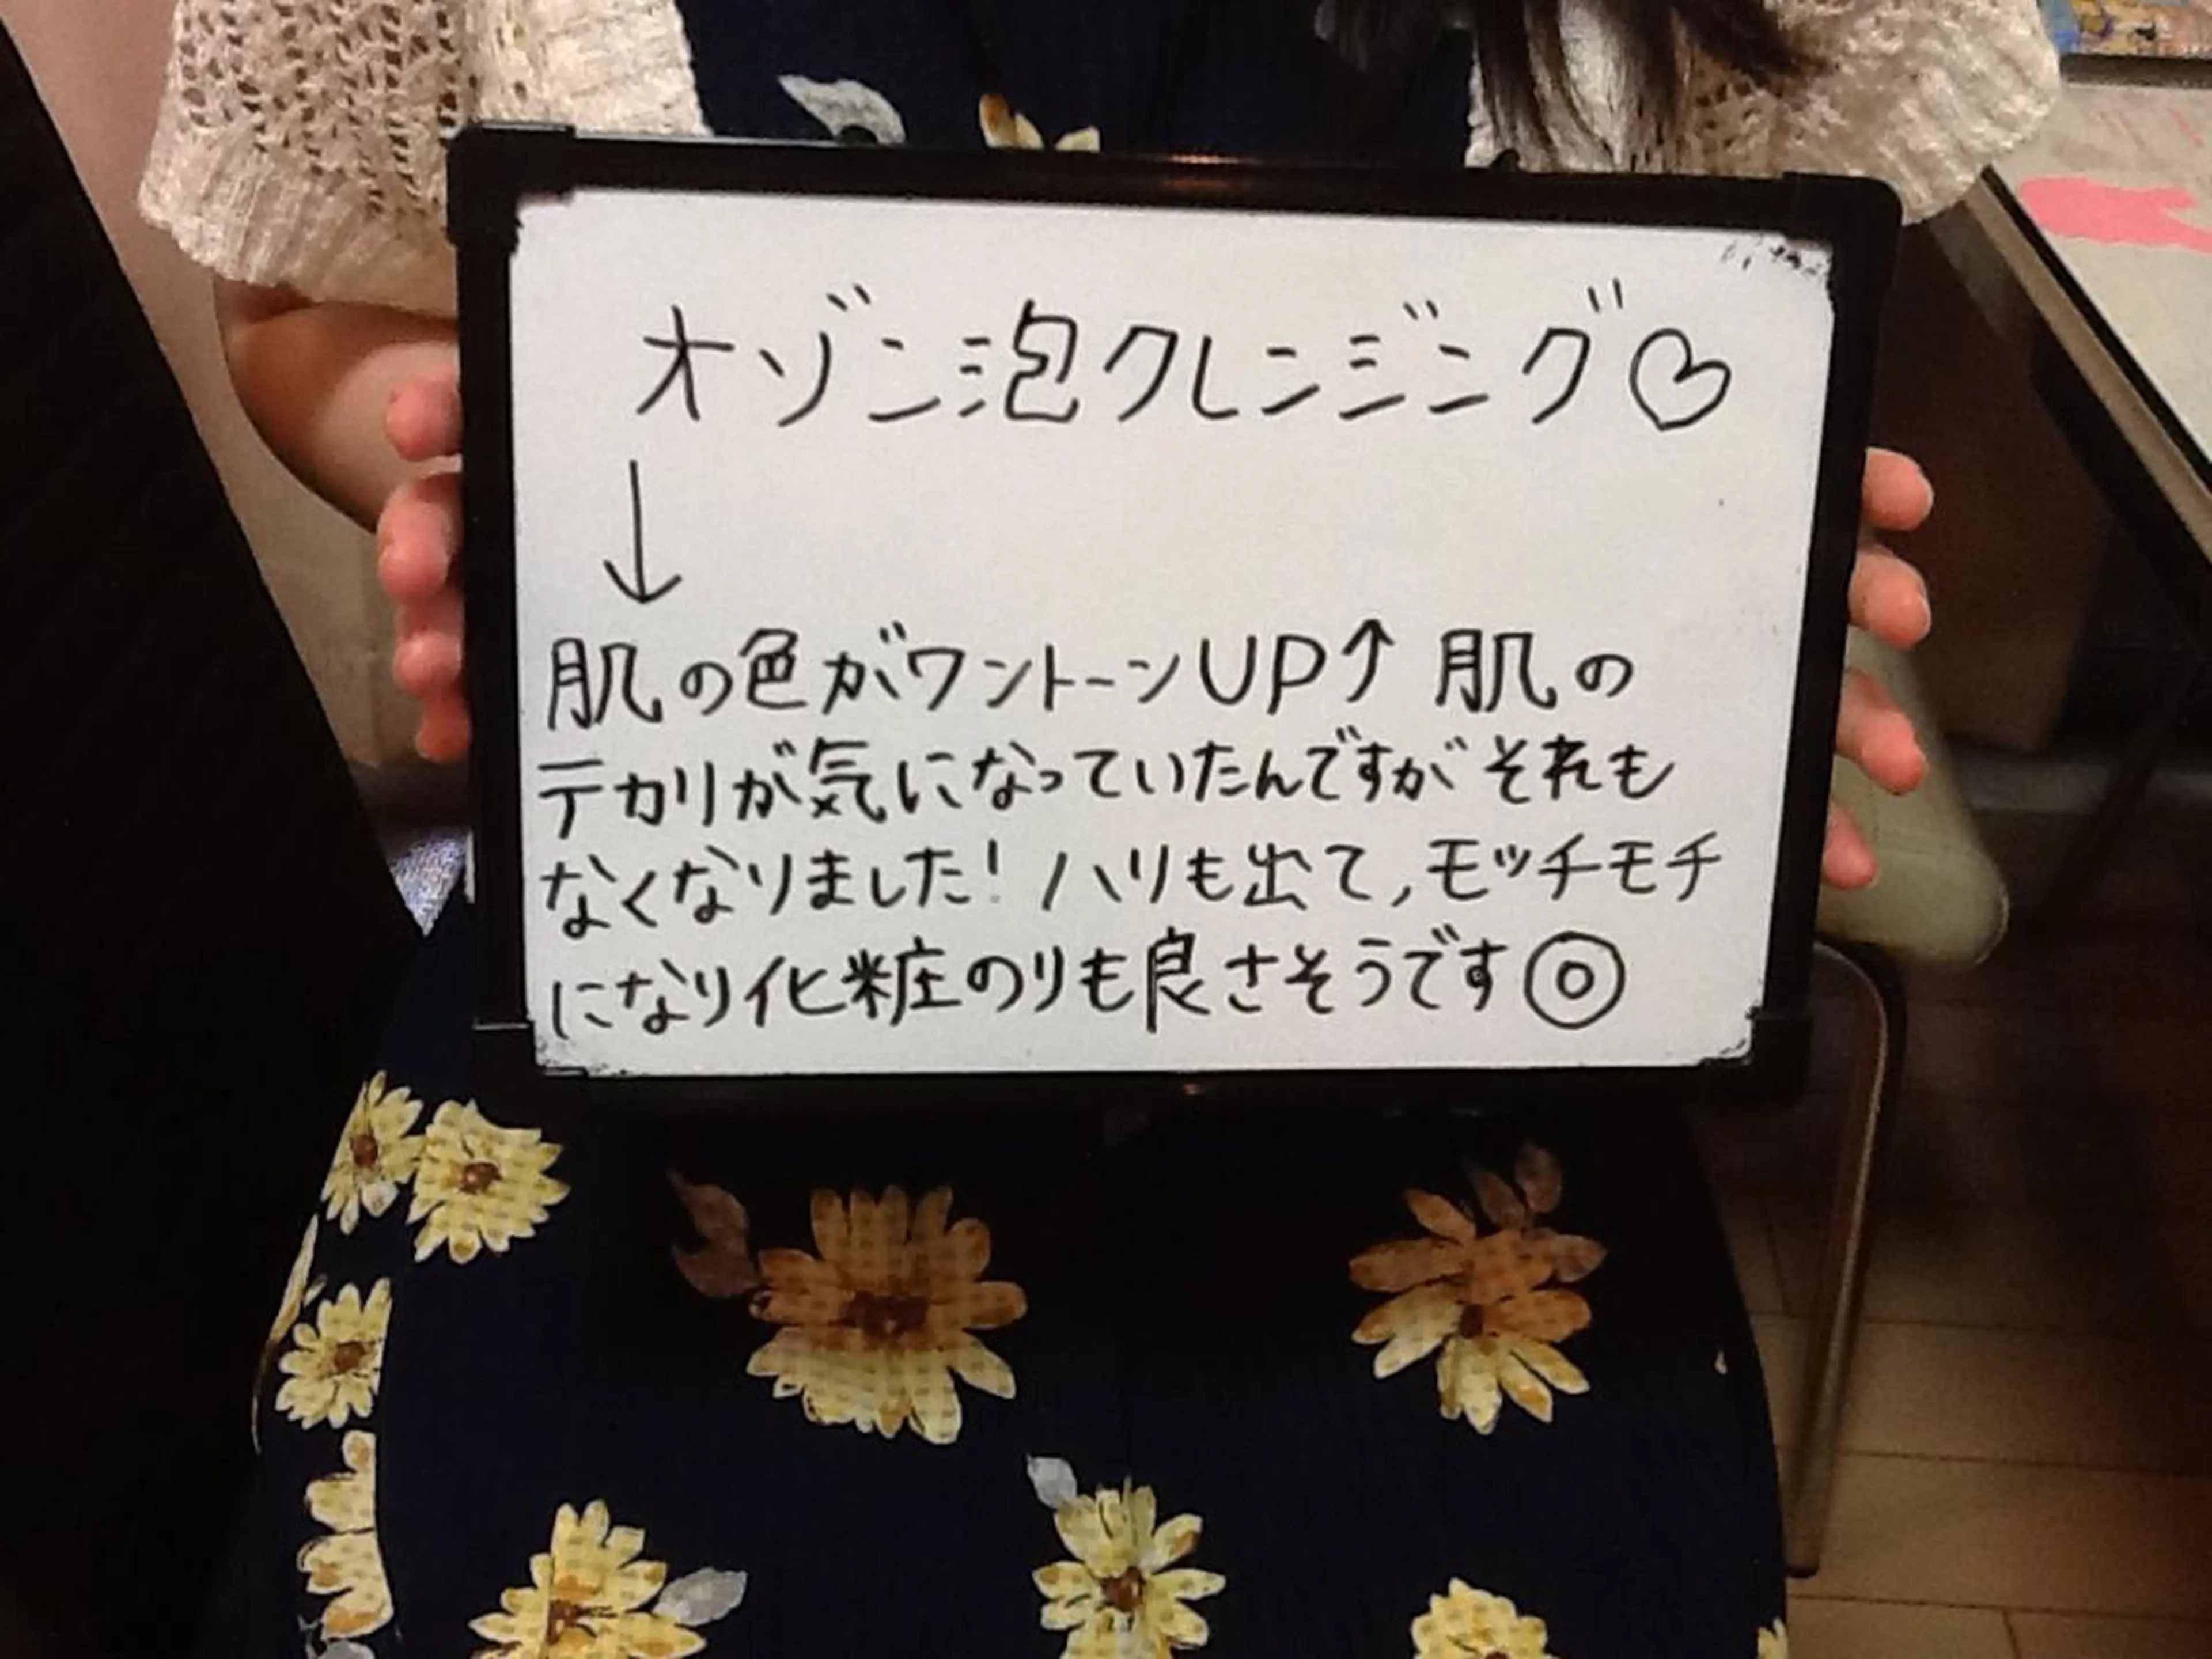 オゾン泡クレンジング♡
↓
肌の色がワントーンUP↑ 肌の
テカリが気になっていたんですがそれも
なくなりました! ハリも出て,モッチモチ
になり化粧のりも良さそうです◎